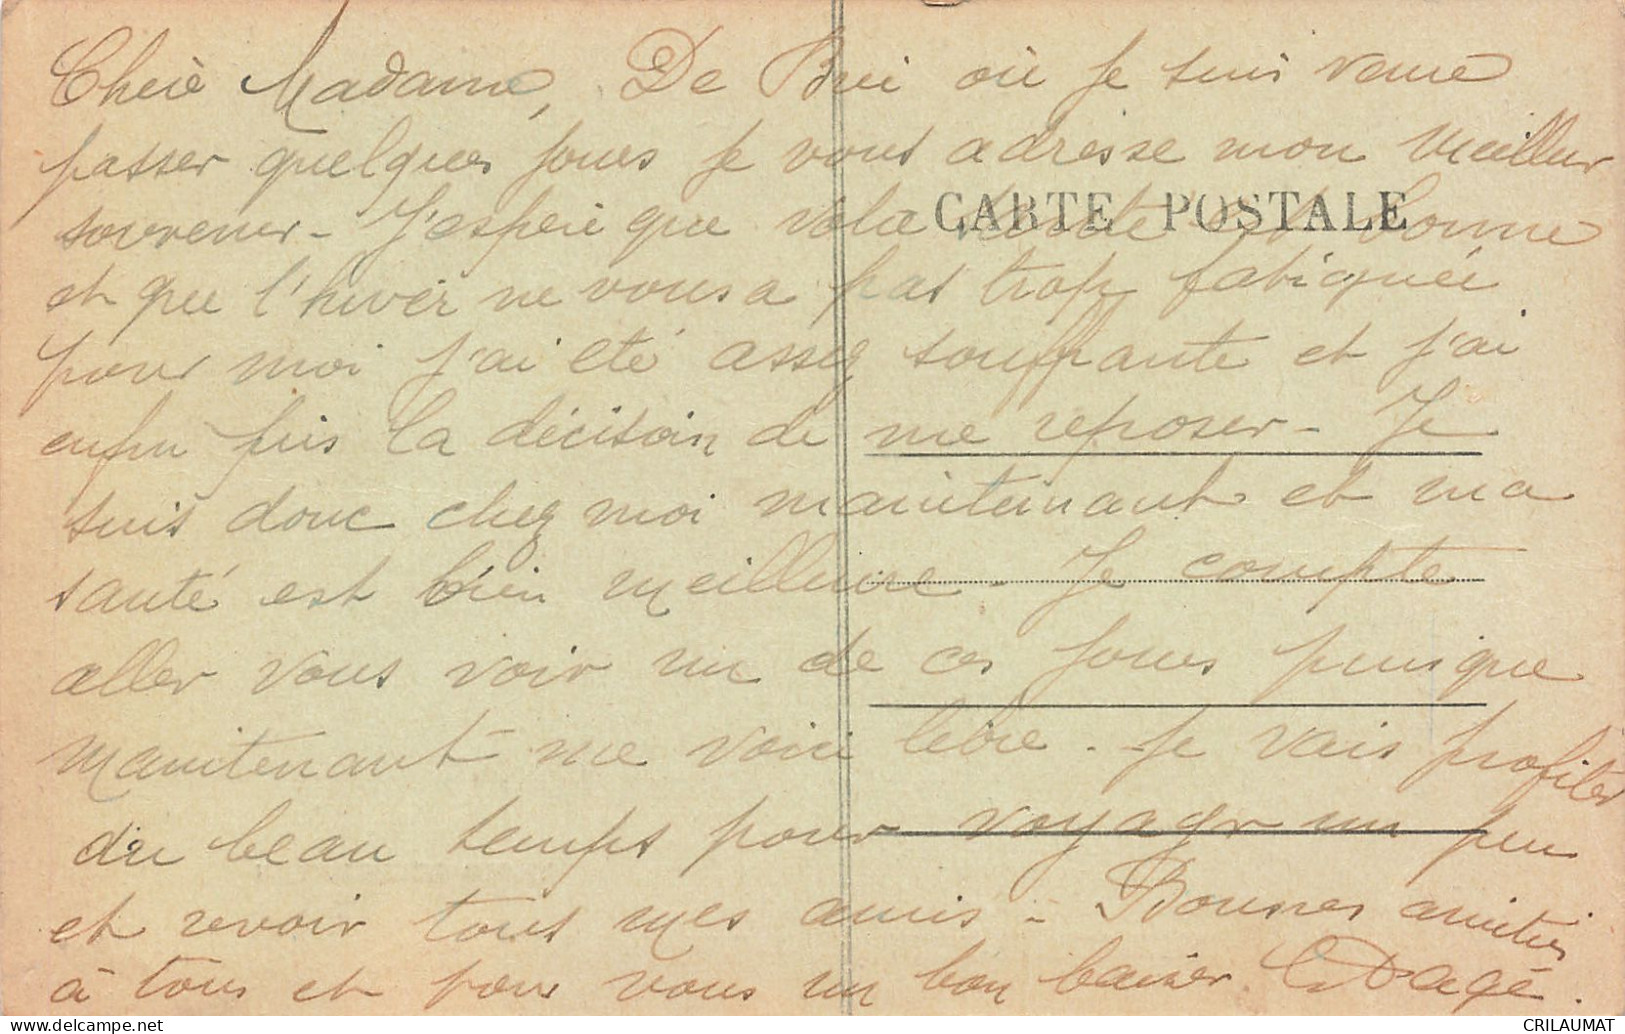 Chère Madame, De Brie où je suis venue
passer quelques jours je vous adresse mon meilleur
souvenir - J'espère que votre santé est bonne
CARTE POSTALE
et que l'hiver ne vous a pas trop fatiguée
pour moi j'ai été assez souffrante et j'ai
enfin pris la décision de me reposer - Je
suis donc chez moi maintenant et ma
santé est bien meilleure - Je compte
aller vous voir un de ces jours puisque
maintenant me voici libre - Je vais profiter
du beau temps pour voyager un peu
et revoir tous mes amis - Bonnes amitiés
à tous et pour vous un bon baiser. Dagé.
CRILAUMAT